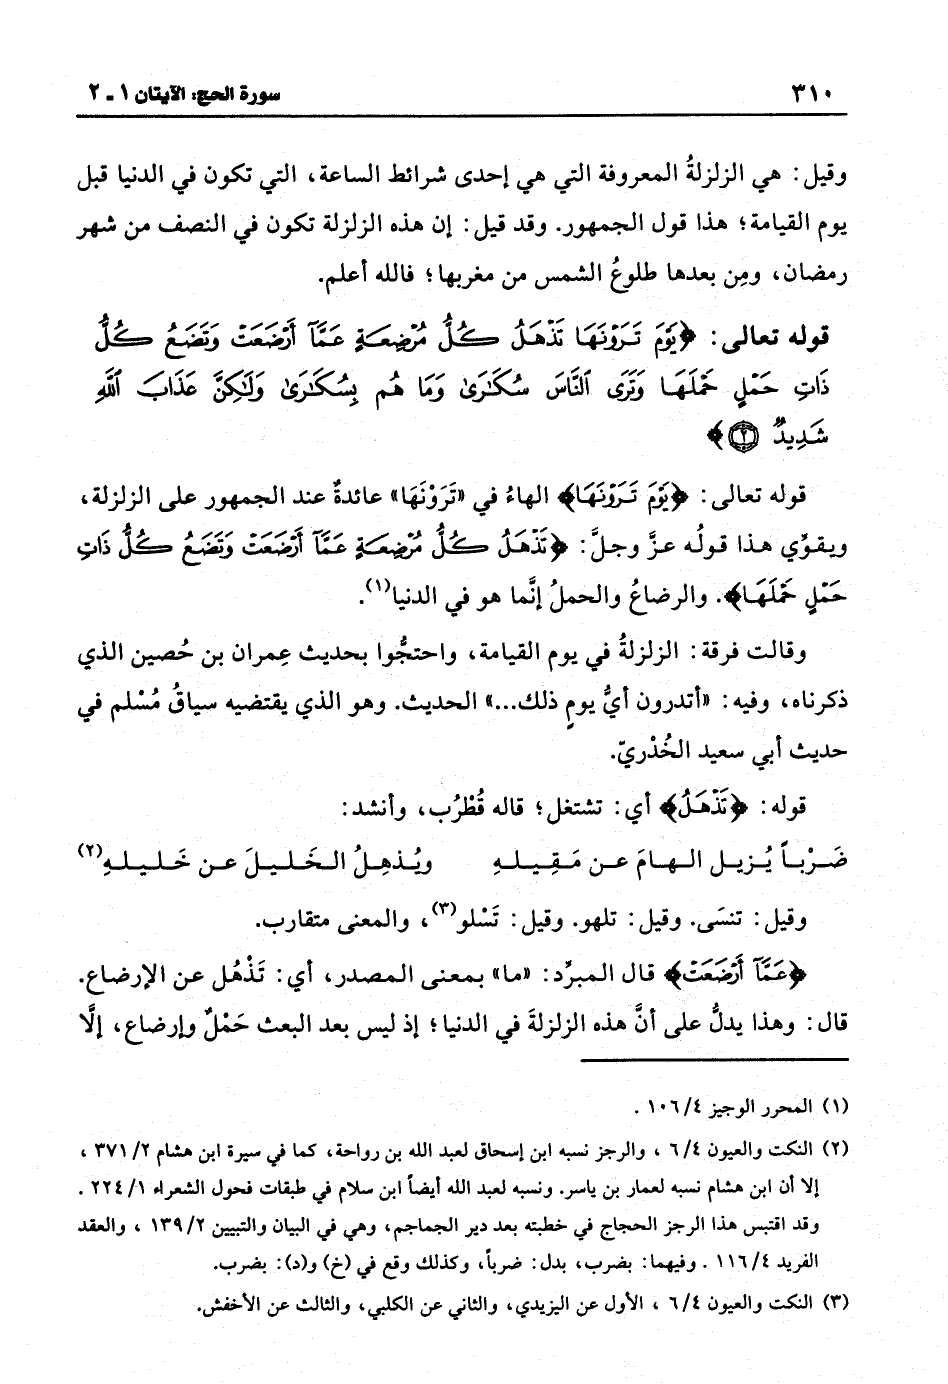 ٣١٠
سورة الحج: الآيتان ١ ـ ٢
وقيل: هي الزلزلةُ المعروفة التي هي إحدى شرائط الساعة، التي تكون في الدنيا قبل
يوم القيامة؛ هذا قول الجمهور. وقد قيل: إن هذه الزلزلة تكون في النصف من شهر
رمضان، ومِن بعدها طلوعُ الشمس من مغربها؛ فالله أعلم.
قوله تعالى: ﴿يَوْمَ تَرَوْنَهَا تَذْهَلُ كُلُّ مُرْضِعَةٍ عَمَّآ أَرْضَعَتْ وَتَضَعُ كُلُّ
ذَاتِ حَمْلٍ حَمْلَهَا وَتَرَى ٱلنَّاسَ سُكَـٰرَىٰ وَمَا هُم بِسُكَـٰرَىٰ وَلَـٰكِنَّ عَذَابَ ٱللَّهِ
شَدِيدٌ ٢﴾
قوله تعالى: ﴿يَوْمَ تَرَوْنَهَا﴾ الهاءُ في «تَرَوْنَهَا» عائدةٌ عند الجمهور على الزلزلة،
ويقوِّي هذا قولُه عزَّ وجلَّ: ﴿تَذْهَلُ كُلُّ مُرْضِعَةٍ عَمَّآ أَرْضَعَتْ وَتَضَعُ كُلُّ ذَاتِ
حَمْلٍ حَمْلَهَا﴾. والرضاعُ والحملُ إنَّما هو في الدنيا(١).
وقالت فرقة: الزلزلةُ في يوم القيامة، واحتجُّوا بحديث عِمران بن حُصين الذي
ذكرناه، وفيه: «أتدرون أيُّ يومٍ ذلك...» الحديث. وهو الذي يقتضيه سياقُ مُسْلم في
حديث أبي سعيد الخُدْريّ.
قوله: ﴿تَذْهَلُ﴾ أي: تشتغل؛ قاله قُطْرُب، وأنشد:
ضَرْباً يُزيل الهامَ عن مَقِيلِهِ ويُذهِلُ الخَليلَ عن خَلِيلِهِ(٢)
وقيل: تنسَى. وقيل: تلهو. وقيل: تَسْلو(٣)، والمعنى متقارب.
﴿عَمَّآ أَرْضَعَتْ﴾ قال المبرِّد: «ما» بمعنى المصدر، أي: تَذْهُل عن الإرضاع.
قال: وهذا يدلُّ على أنَّ هذه الزلزلةَ في الدنيا؛ إذ ليس بعد البعث حَمْلٌ وإرضاع، إلَّا
(١) المحرر الوجيز ٤/ ١٠٦ .
(٢) النكت والعيون ٤/ ٦ ، والرجز نسبه ابن إسحاق لعبد الله بن رواحة، كما في سيرة ابن هشام ٢/ ٣٧١ ،
إلا أن ابن هشام نسبه لعمار بن ياسر. ونسبه لعبد الله أيضاً ابن سلام في طبقات فحول الشعراء ١/ ٢٢٤ .
وقد اقتبس هذا الرجز الحجاج في خطبته بعد دير الجماجم، وهي في البيان والتبيين ٢/ ١٣٩ ، والعقد
الفريد ٤/ ١١٦ . وفيهما: بضرب، بدل: ضرباً، وكذلك وقع في (خ) و(د): بضرب.
(٣) النكت والعيون ٤/ ٦ ، الأول عن اليزيدي، والثاني عن الكلبي، والثالث عن الأخفش.